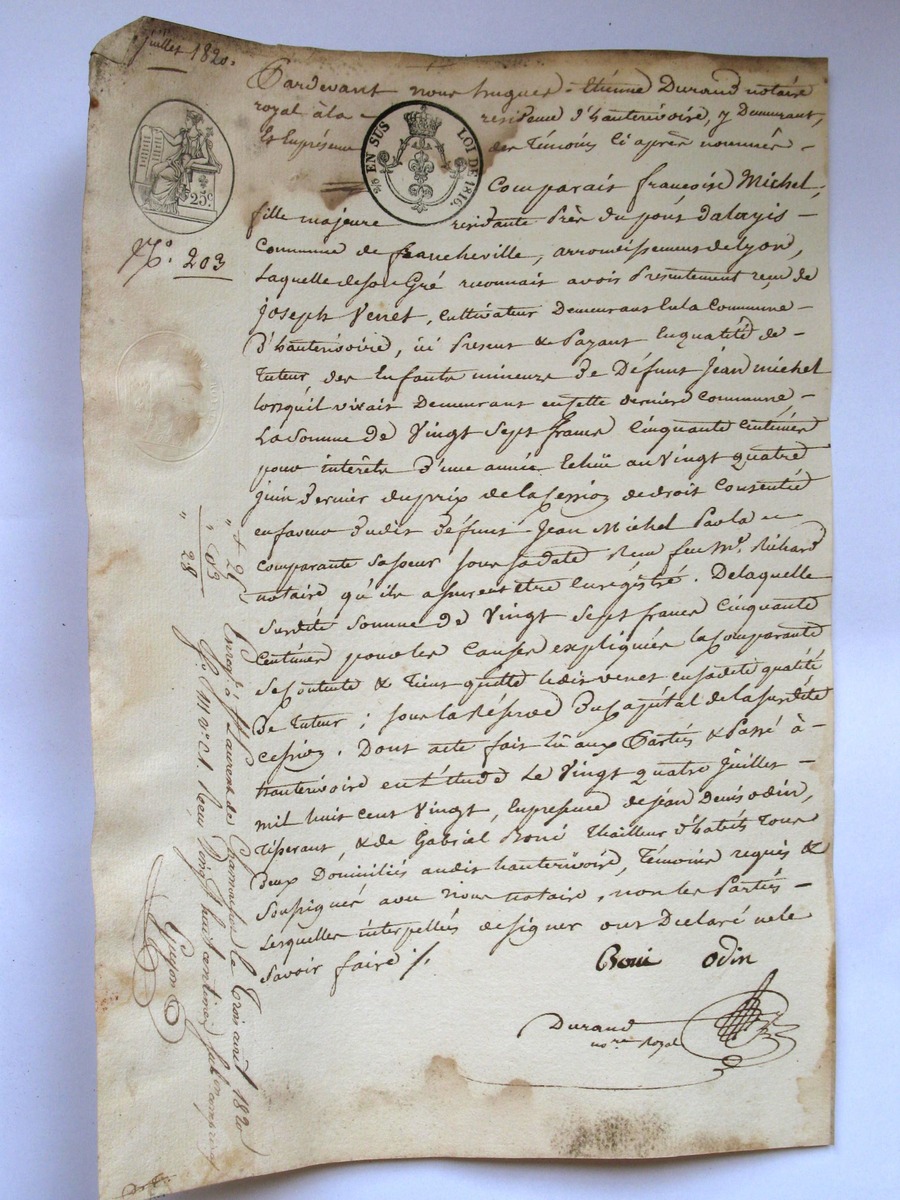 juillet 1820.
Pardevant nous hugues-Etienne Durand notaire
royal à la residence d'hauterivoire, y Demeurant,
Et En présence des Témoins Ci après nommés -
EN SUS LOI DE 1816.
25c
Comparait françoise Michel,
N.º 203
fille majeure residante Près du pont dalayis -
Commune de francheville, arrondissement de lyon,
Laquelle de son Gré reconnait avoir Presentement reçu de
Joseph Verret, Cultivateur Demeurant En la Commune
D'hauterivoire, ici Present & Payant En qualité de -
Tuteur des Enfants mineurs de Défunt Jean michel
lorsqu'il vivait Demeurant en cette derniere Commune -
La Somme de Vingt Sept francs Cinquante Centimes
pour intérêts D'une année Echüe au Vingt quatre
juin Dernier du prix de la Cession de droit Consentie
en faveur dudit Défunt Jean Michel Par la
Comparante Sa soeur sous sa date Reçu feu M.e Richard
notaire qu'ils assurent être Enrégistré. De laquelle
Surdite Somme de Vingt Sept francs Cinquante
Centimes pour les Causes expliquées la Comparante
Se Contente & Tient quitte ledit verret en sadite qualité
De Tuteur ; sous la Réserve du Capital de la surdite
Cession. Dont acte fait lû aux Parties & Passé à -
hauterivoire en l'étude Le Vingt quatre Juillet -
mil huit Cent Vingt, En présence de jean Denis odin,
Tisserant, & de Gabriel Boni Thailleur d'habits Tous
Deux Domiciliés audit hauterivoire, Témoins requis &
Soussignés avec Nous notaire, non les Parties -
Lesquelles interpellées de signer ont Déclaré ne le
Savoir faire /.
Boni Odin
Durand
no.re Royal
" + 25
" 03
" 28
Enreg.é à S.t Laurent de Chamousset le Trois août 1820
f.o 111 v.o c.1. Reçu Vingt huit centimes
Guyon